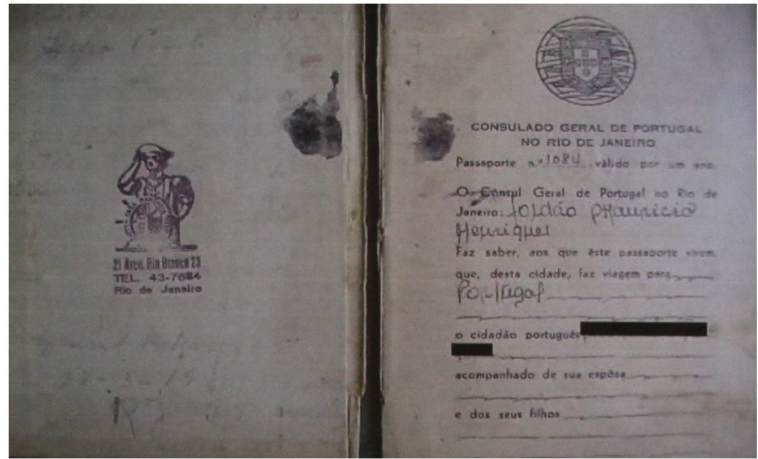 21 Aven. Rio Branco 23
TEL. 43-7684
Rio de Janeiro
CONSULADO GERAL DE PORTUGAL
NO RIO DE JANEIRO
Passaporte nº 1084 válido por um ano.
O Consul Geral de Portugal no Rio de
Janeiro: Jordão Mauricio
Henriques
Faz saber, aos que êste passaporte virem
que, desta cidade, faz viagem para
Portugal
o cidadão português
acompanhado de sua espôsa
e dos seus filhos